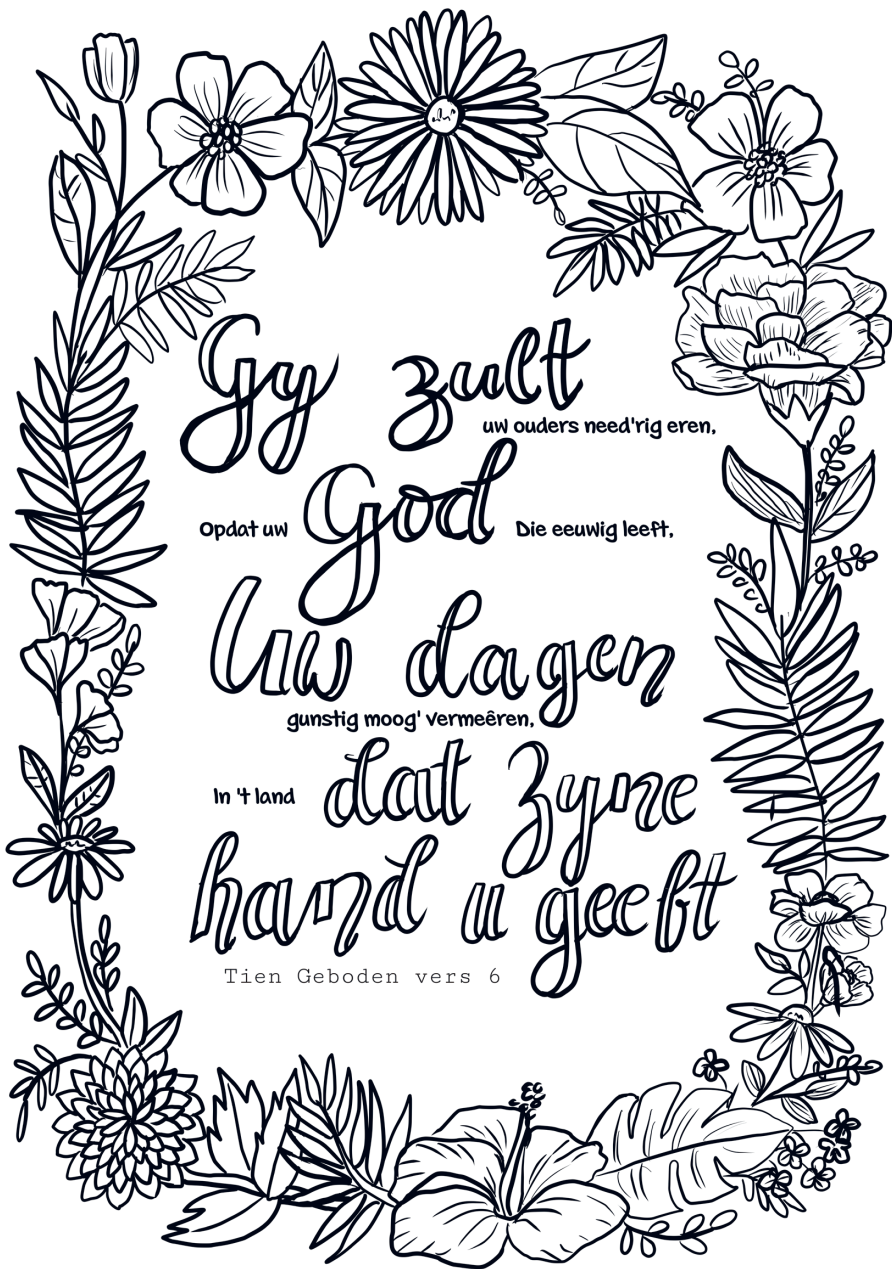 Gy zult
uw ouders need'rig eren,
Opdat uw God Die eeuwig leeft,
Uw dagen
gunstig moog' vermeêren,
In 't land dat zyne
hand u geeft
Tien Geboden vers 6